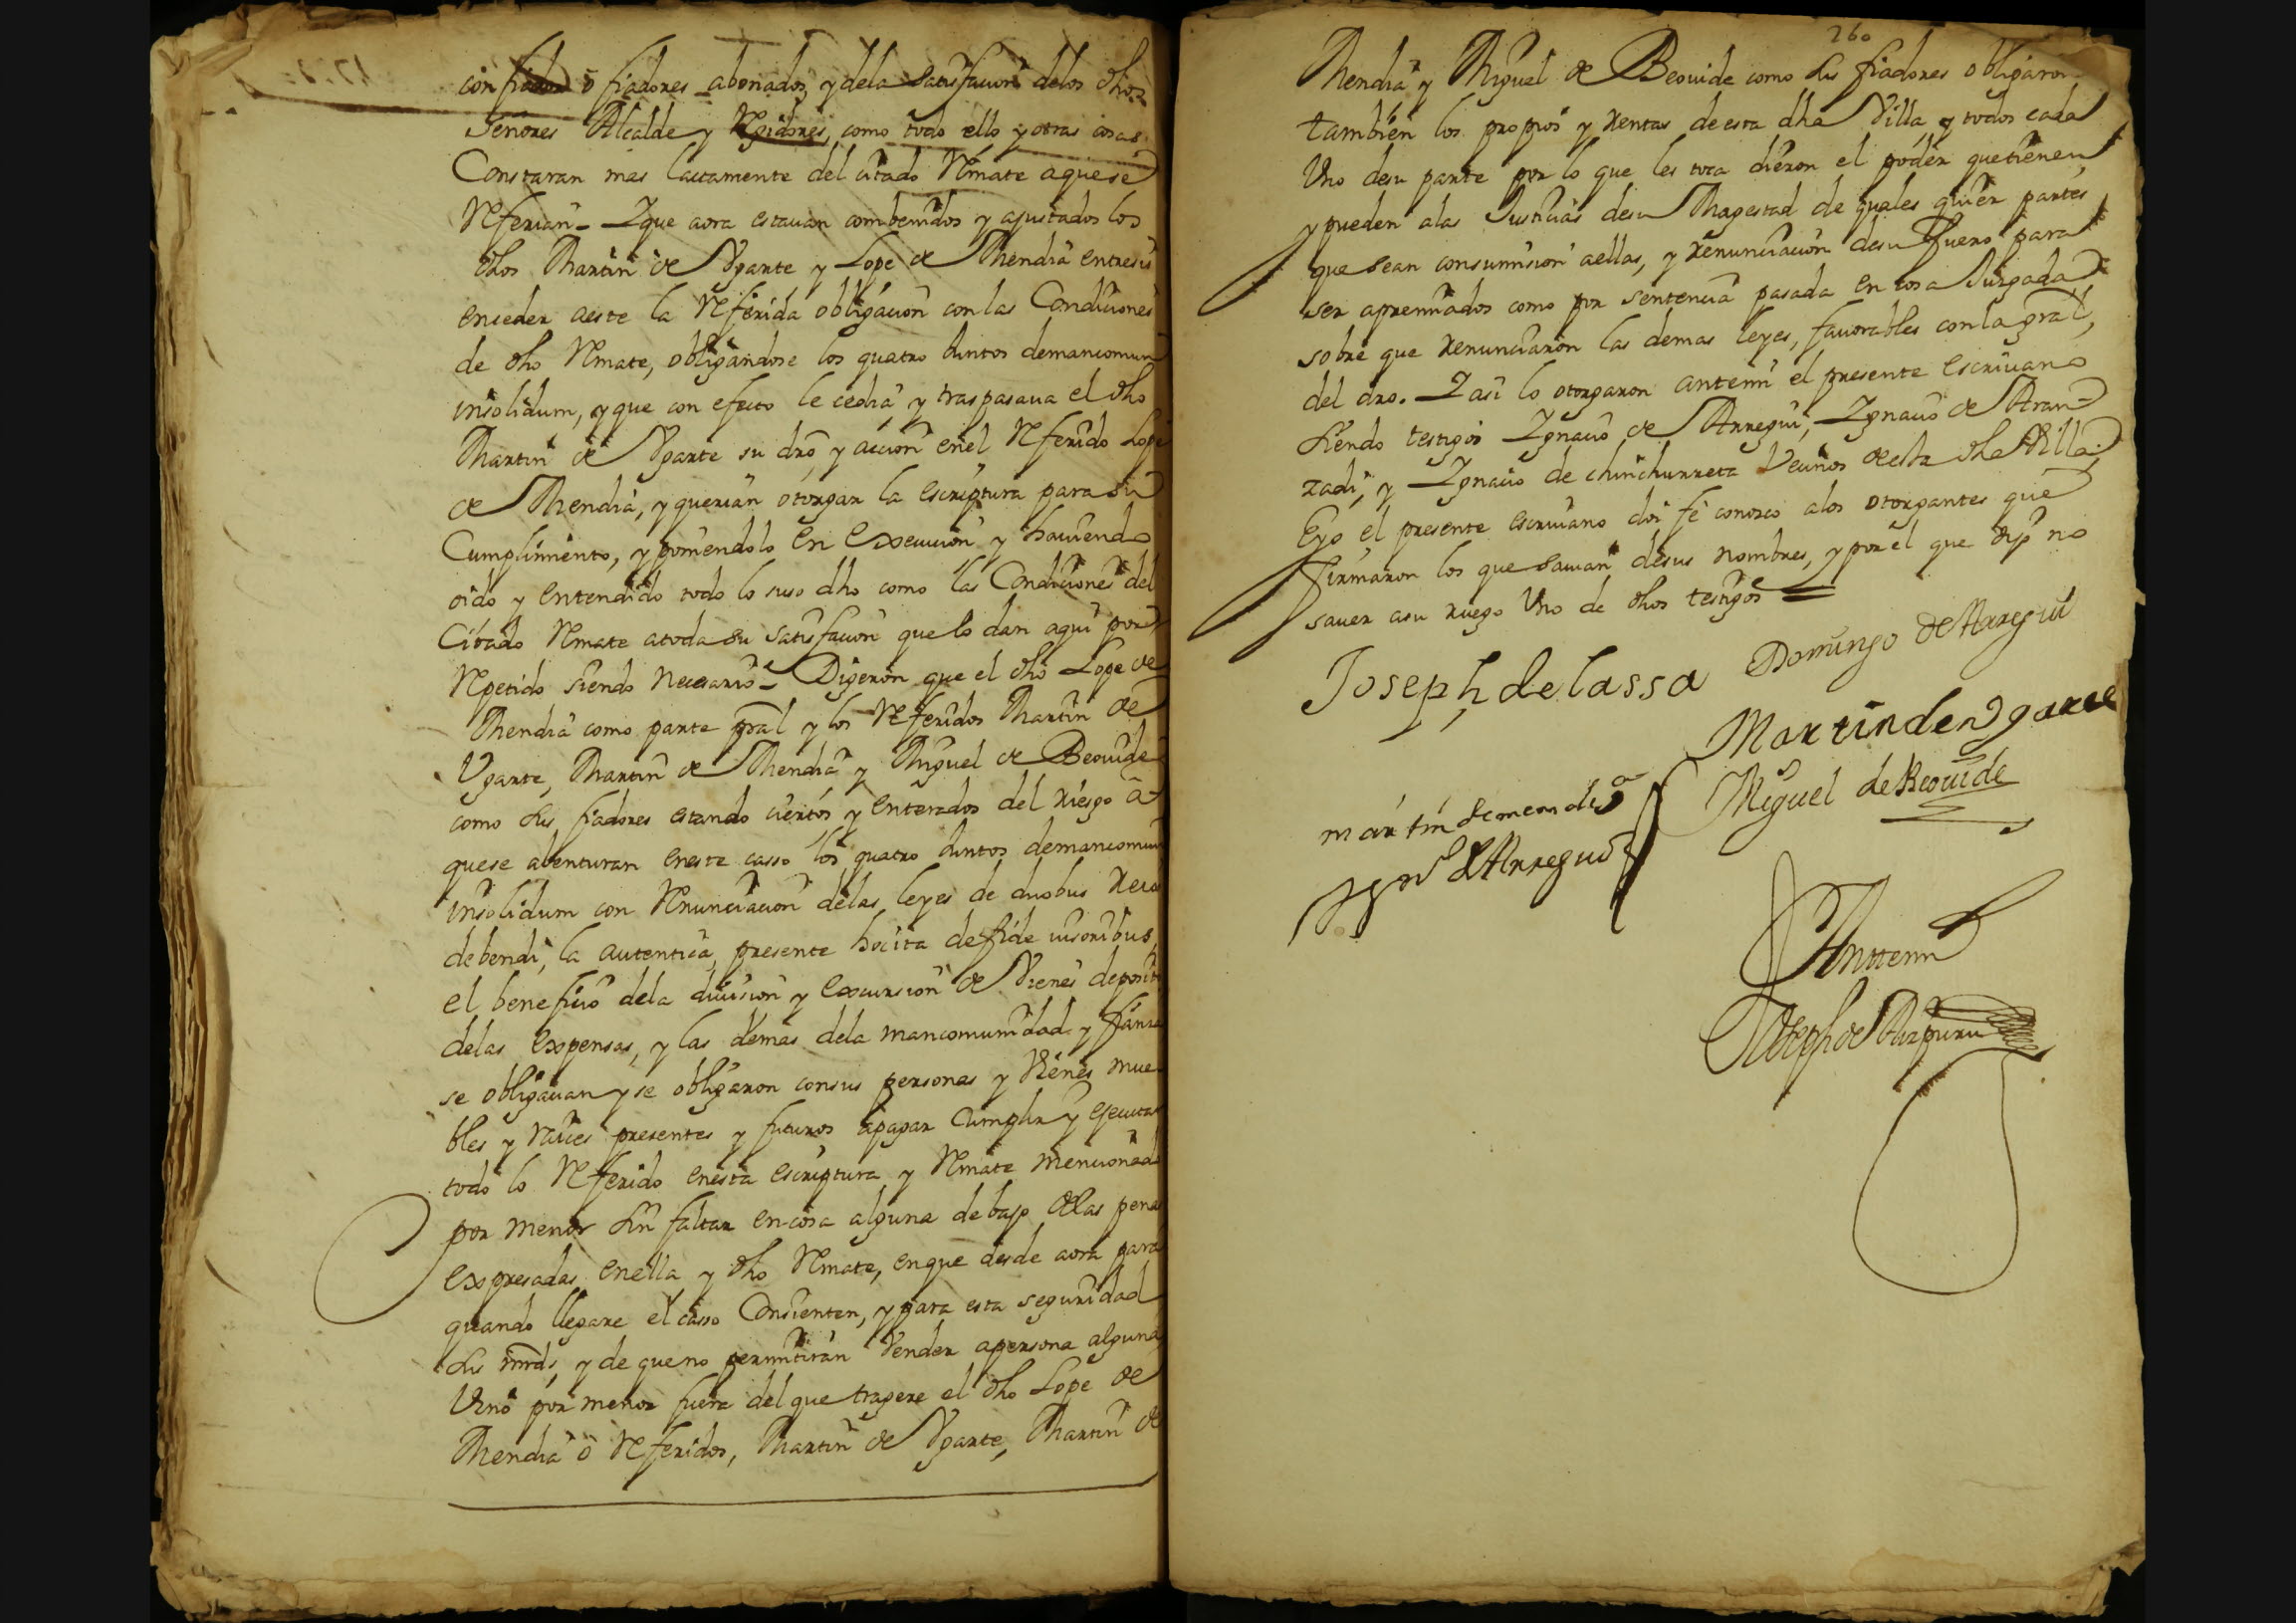 con fiador o fiadores abonados, y dela satisfacion delos dhos
Señores Alcalde y Rexidores, como todo ello y otras cosas
Constaran mas lactamente del citado Remate aquese
Referian = Y que aora estavan combenidos y ajustados los
dhos Martin de Vgarte y Lope de Mendia entresi
enceder aeste la Referida obligacion con las Condiciones
de dho Remate, obligandose los quatro Juntos demancomun
insolidum, y que con efecto le cedia y traspasava el dho
Martin de Vgarte su dro, y accion enel Referido Lope
de Mendia, y querian otorgar la escriptura para su
Cumplimiento, y poniendolo en execucion y haviendo
oido y entendido todo lo suso dho como las Condiciones del
Citado Remate atoda su satisfacion que lo dan aqui por
Repetido siendo necesario = Digeron que el dho Lope de
Mendia como parte pral y los Referidos Martin de
Vgarte, Martin de Mendia y Miguel de Beovide
como sus fiadores estando ciertos y enterados del riesgo a
quese abenturan eneste casso los quatro Juntos demancomun
insolidum con Renunciacion delas leyes de duobus Reis
debendi, la autentica presente hocita de fide iusoribus
el beneficio dela division y excursion de Vienes deposito
delas expensas, y las demas dela mancomunidad y fianza
se obligavan y se obligaron consus personas y Vienes mue
bles y Raices presentes y futuros apagar Cumplir y executar
todo lo Referido enesta escriptura y Remate mencionado
por menor sin faltar en cosa alguna debajo delas penas
expresadas enella y dho Remate, enque desde aora para
quando llegare el casso Consienten, y para esta seguridad
sus mrds, y de que no permitiran Vender apersona alguna
Vino por menor fuera del que tragere el dho Lope de
Mendia o Referidos, Martin de Vgarte, Martin de
260
Mendia y Miguel de Beovide como sus fiadores obligaron
tambien los propios y rentas de esta dha Villa y todos cada
Vno desu parte por lo que les toca dieron el poder que tienen
y pueden alas Justicias desu Magestad de quales quier partes
que sean consumision aellas, y renunciacion desu fuero para
ser apremiados como por sentencia pasada en cosa Juzgada
sobre que renunciaron las demas leyes, favorables con la gral,
del dro. Y asi lo otorgaron antemi el presente escrivano
siendo testigos Ygnacio de Arregui, Ygnacio de Aran=
zadi, y Ygnacio de chinchurreta Vecinos de esta dha Villa
Eyo el presente escrivano doi fe conozco alos otorgantes que
firmaron los que savian desus nombres, y por el que dijo no
saver asu ruego Vno de dhos testigos =
Joseph de lassa Domingo de Arregui
Martin de Vgarte
martin de mendia Miguel de Beovide
Ygnº de Arregui
Anttemi
Joseph de Aizpuru